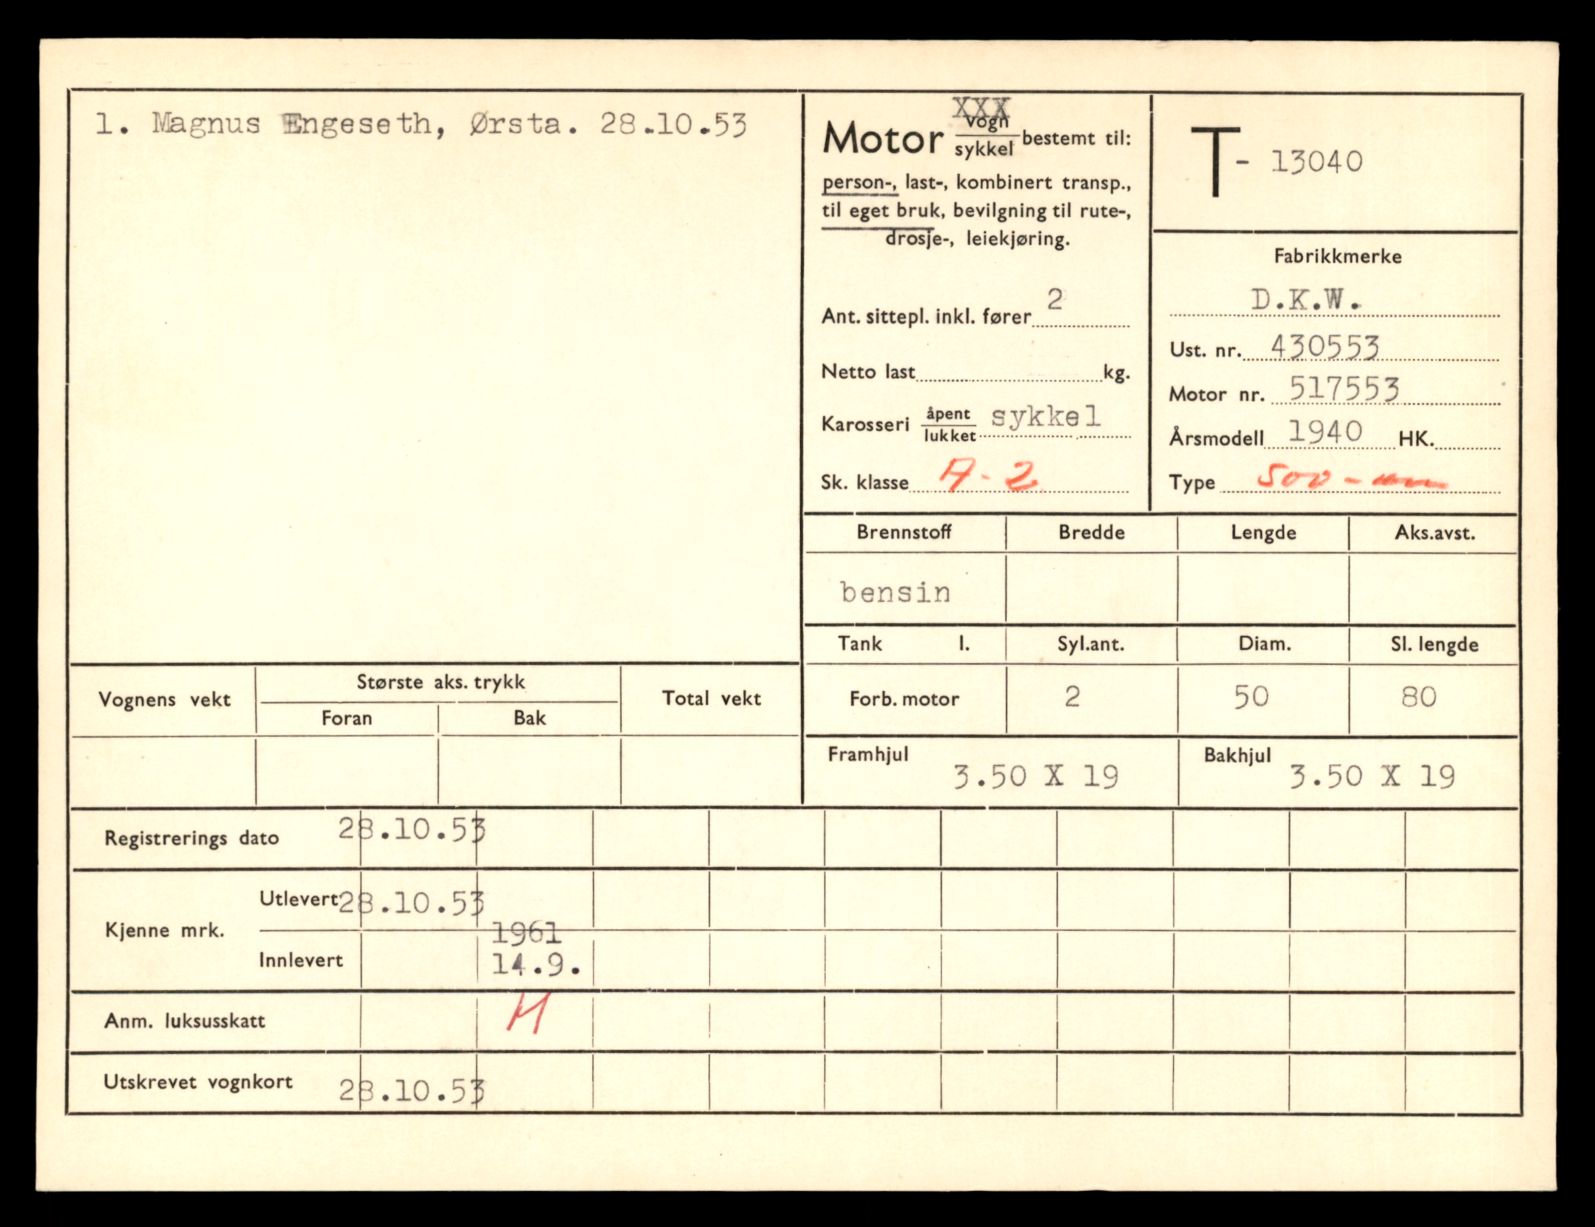 1. Magnus Engeseth, Ørsta. 28.10.53
XXX
Motor vogn/sykkel bestemt til:
person-, last-, kombinert transp.,
til eget bruk, bevilgning til rute-,
drosje-, leiekjøring.
Ant. sittepl. inkl. fører 2
Netto last kg.
Karosseri åpent/lukket sykkel
Sk. klasse A-2
T- 13040
Fabrikkmerke
D.K.W.
Ust. nr. 430553
Motor nr. 517553
Årsmodell 1940 HK.
Type 500 -
Brennstoff Bredde Lengde Aks.avst.
bensin
Tank l. Syl.ant. Diam. Sl. lengde
Forb. motor 2 50 80
Framhjul 3.50 X 19 Bakhjul 3.50 X 19
Vognens vekt Største aks. trykk Total vekt
Foran Bak
Registrerings dato 28.10.53
Kjenne mrk. Utlevert 28.10.53
1961
Innlevert 14.9.
Anm. luksusskatt
Utskrevet vognkort 28.10.53